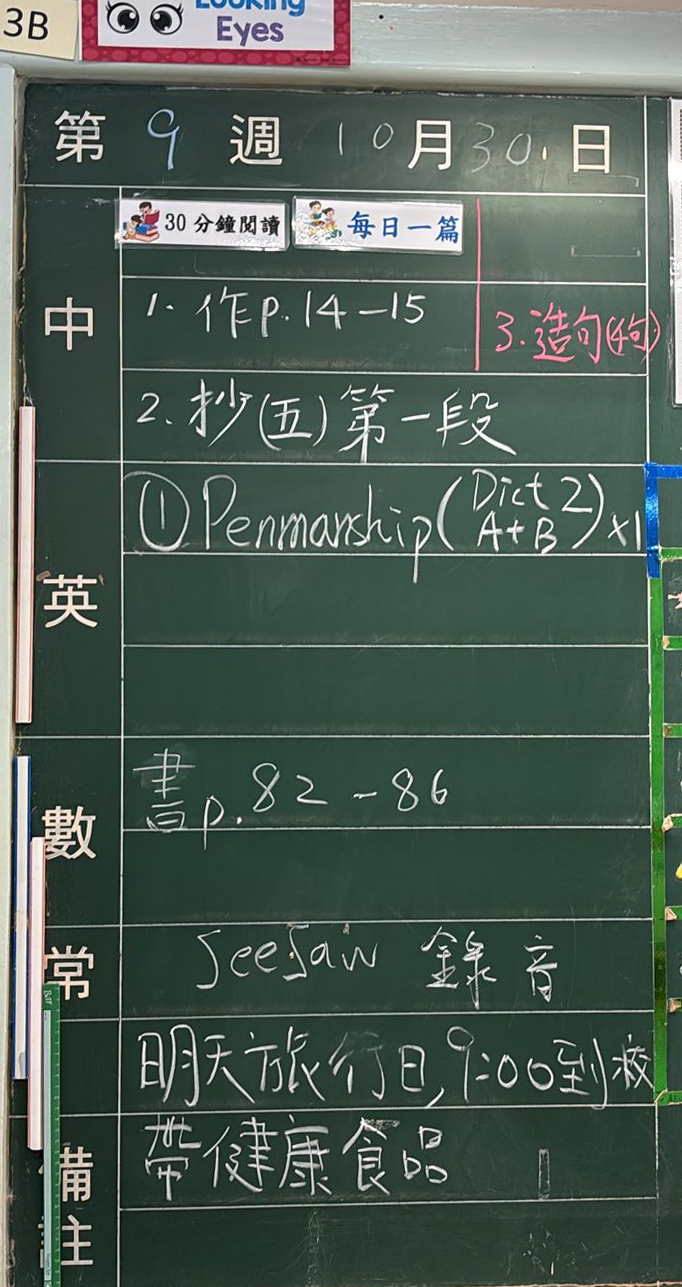 3B
Looking
Eyes
第 9 週 10月30日
30分鐘閱讀 每日一篇
中
1. 作p.14-15
3.造句(4句)
2. 抄(五)第一段
英
①Penmanship(Dict 2 A+B)×1
數
書p.82-86
常
SeeSaw 錄音
明天旅行日,9:00到校
備註
帶健康食品